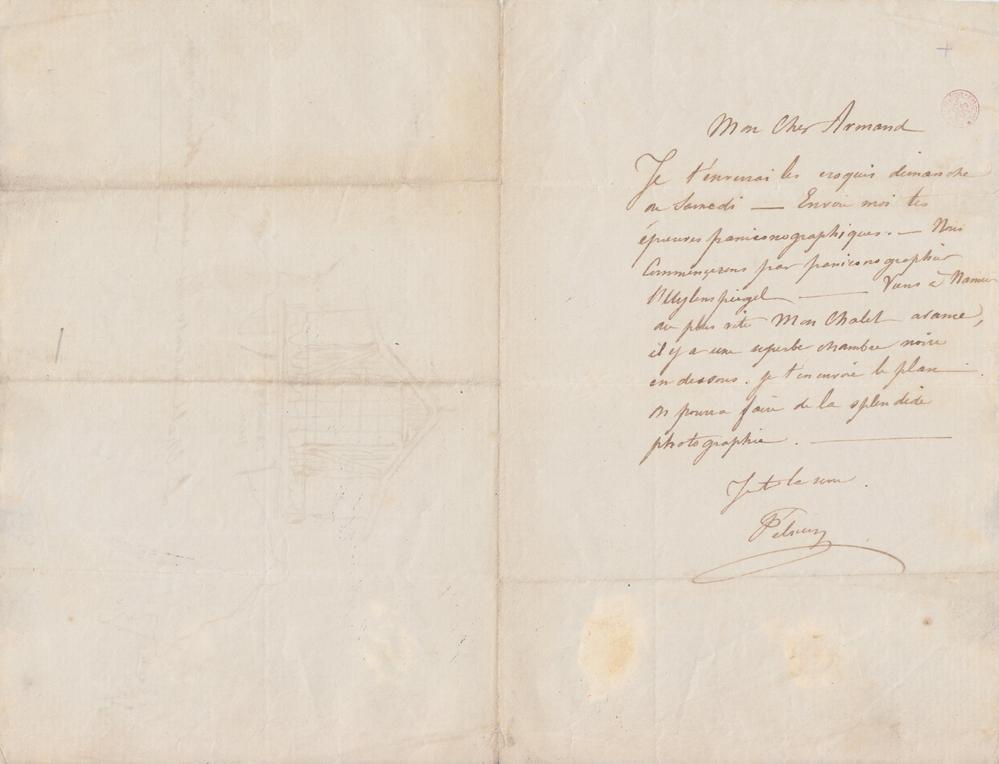 Mon Cher Armand
Je t'enverrai les croquis dimanche
ou Samedi — Envoie moi tes
épreuves paniconographiques. — Nous
Commencerons par paniconographier
l'Uylenspiegel — Viens à Namur
au plus vite Mon Chalet avance,
il y a une superbe chambre noire
en dessous. je t'en envoie le plan —.
On pourra faire de la splendide
photographie. —
Je te la serre.